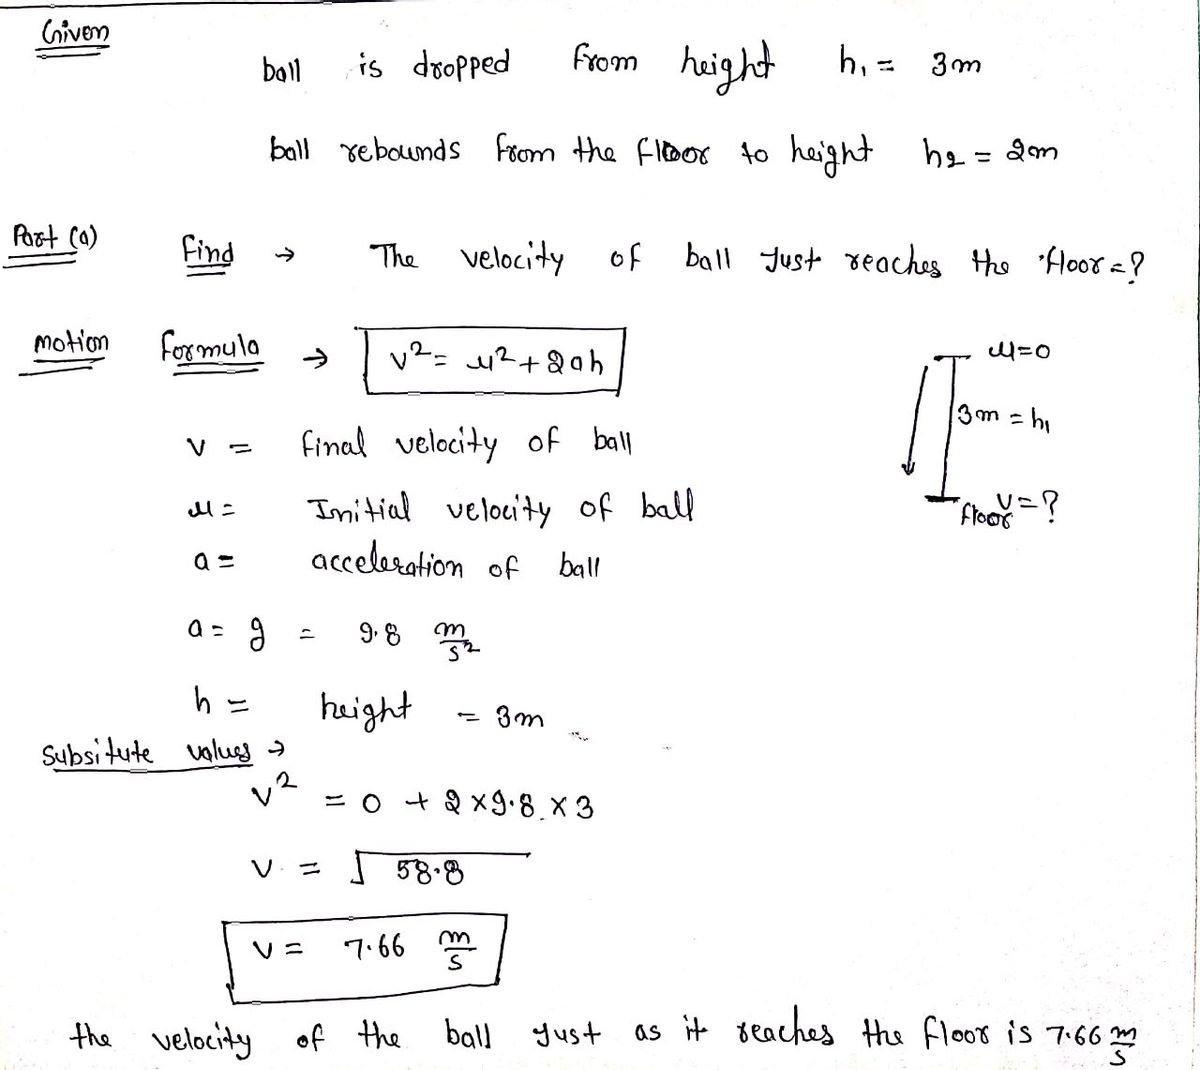 Given
ball is dropped from height h₁ = 3m
ball rebounds from the floor to height h₂ = 2m
Part (a) Find → The velocity of ball Just reaches the floor = ?
motion formula → v² = u² + 2ah
u=0
3m = h₁
floor v=?
v = final velocity of ball
u = Initial velocity of ball
a = acceleration of ball
a = g = 9.8 m/s²
h = height = 3m
Subsitute values →
v² = 0 + 2 × 9.8 × 3
v = √58.8
v = 7.66 m/s
the velocity of the ball Just as it reaches the floor is 7.66 m/s